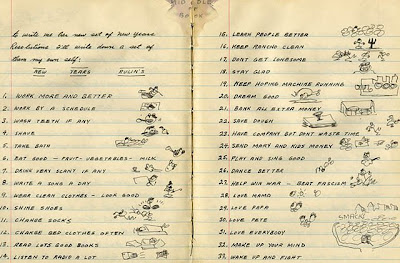 to write me her new set of New Years
Resolutions I'll write down a set of
them my own self:
NEW YEARS RULIN'S
1. WORK MORE AND BETTER
2. WORK BY A SCHEDULE
3. WASH TEETH IF ANY
4. SHAVE
5. TAKE BATH
6. EAT GOOD - FRUIT - VEGETABLES - MILK
7. DRINK VERY SCANT IF ANY
8. WRITE A SONG A DAY
9. WEAR CLEAN CLOTHES - LOOK GOOD
10. SHINE SHOES
11. CHANGE SOCKS
12. CHANGE BED CLOTHES OFTEN
13. READ LOTS GOOD BOOKS
14. LISTEN TO RADIO A LOT
15. LEARN PEOPLE BETTER
16. KEEP RANCHO CLEAN
17. DONT GET LONESOME
18. STAY GLAD
19. KEEP HOPING MACHINE RUNNING
20. DREAM GOOD
21. BANK ALL EXTRA MONEY
22. SAVE DOUGH
23. HAVE COMPANY BUT DONT WASTE TIME
24. SEND MARY AND KIDS MONEY
25. PLAY AND SING GOOD
26. DANCE BETTER
27. HELP WIN WAR - BEAT FASCISM
28. LOVE MAMA
29. LOVE PAPA
30. LOVE PETE
31. LOVE EVERYBODY
32. MAKE UP YOUR MIND
33. WAKE UP AND FIGHT
SMACK